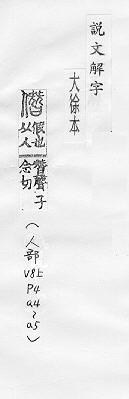 說文解字
大徐本
僭假也从人朁聲子念切
(人部V8上P4a4~a5)